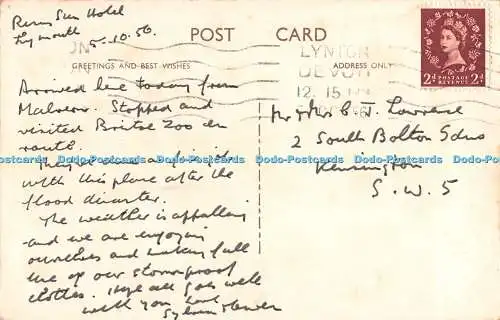 Rising Sun Hotel
Lynmouth 5.10.56.
POST CARD
LYNTON
DEVON
12. 15 PM
GREETINGS AND BEST WISHES
ADDRESS ONLY
POSTAGE
REVENUE
2d 2d
Arrived here today from
Malvern. Stopped and
visited Bristol Zoo en
route.
with this place after the
flood disaster.
The weather is appalling
and we are enjoying
ourselves and making full
use of our stormproof
clothes. Hope all goes well
with you love
Mr & Mrs C. J. Lawrence
2 South Bolton Gdns
Kensington
S.W.5
Dodo-Postcards Dodo-Postcards Dodo-Postcards Dodo-Postcards Dodo-Postcards Dodo-Postcards
Dodo-Postcards Dodo-Postcards Dodo-Postcards Dodo-Postcards Dodo-Postcards Dodo-Postcards